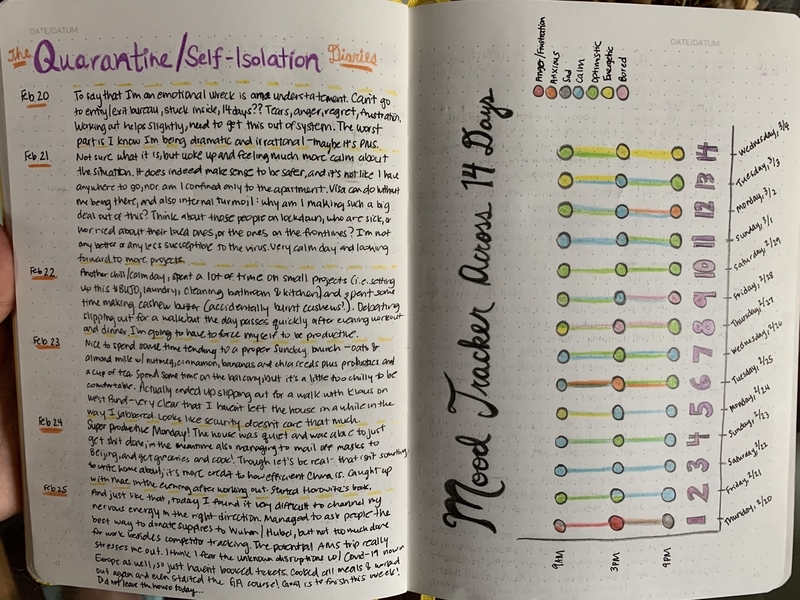 DATE/DATUM:
The Quarantine/Self-Isolation Diaries
Feb 20
To say that I'm an emotional wreck is an understatement. Can't go
to entry/exit bureau, stuck inside, 14 days?? Tears, anger, regret, frustration.
Working out helps slightly, need to get this out of system. The worst
part is I know I'm being dramatic and irrational - maybe it's PMS.
Feb 21
Not sure what it is, but woke up and feeling much more calm about
the situation. It does indeed make sense to be safer, and it's not like I have
anywhere to go, nor am I confined only to the apartment. Visa can do without
me being there, and also internal turmoil: why am I making such a big
deal out of this? Think about those people on lockdown, who are sick, or
worried about their loved ones, or the ones on the frontlines? I'm not
any better or any less susceptible to the virus. Very calm day and looking
forward to more projects.
Feb 22
Another chill/calm day, spent a lot of time on small projects (i.e. setting
up this #BUJO, laundry, cleaning bathroom & kitchen) and spent some
time making cashew butter (accidentally burnt cashews!). Debating
slipping out for a walk but the day passes quickly after evening workout
and dinner. I'm going to have to force myself to be productive.
Feb 23
Nice to spend some time tending to a proper Sunday brunch - oats &
almond milk w/ nutmeg, cinnamon, bananas and chia seeds plus probiotics and
a cup of tea. Spend some time on the balcony, but it's a little too chilly to be
comfortable. Actually ended up slipping out for a walk with Klaus on
West Bund - very clear that I haven't left the house in a while in the
way I jabbered. Looks like security doesn't care that much.
Feb 24
Super productive Monday! The house was quiet and was able to just
get shit done, in the meantime also managing to mail off masks to
Beijing, and get groceries and cook! Though let's be real - that isn't something
to write home about, it's more credit to how efficient China is. Caught up
with Mac in the evening after working out. Started Horowitz's book.
Feb 25
And just like that, today I found it very difficult to channel my
nervous energy in the right direction. Managed to ask people the
best way to donate supplies to Wuhan/Hubei, but not too much done
for work besides competitor tracking. The potential AMS trip really
stresses me out. I think I fear the unknown disruptions w/ Covid-19 now in
Europe as well, so just haven't booked tickets. Cooked all meals & worked
out again and even started the GA course! Goal is to finish this week!
Did not leave the house today...
DATE/DATUM:
Mood Tracker Across 14 Days
Anger/Frustration
Anxious
Sad
Calm
Optimistic
Energetic
Bored
14 Wednesday, 3/4
13 Tuesday, 3/3
12 Monday, 3/2
11 Sunday, 3/1
10 Saturday, 2/29
9 Friday, 2/28
8 Thursday, 2/27
7 Wednesday, 2/26
6 Tuesday, 2/25
5 Monday, 2/24
4 Sunday, 2/23
3 Saturday, 2/22
2 Friday, 2/21
1 Thursday, 2/20
9AM
3PM
9PM